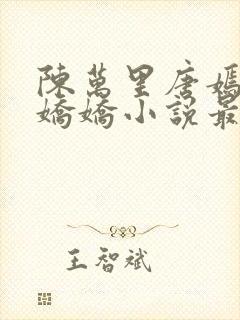 陳萬里唐嫣
嬌嬌小說最
王智斌